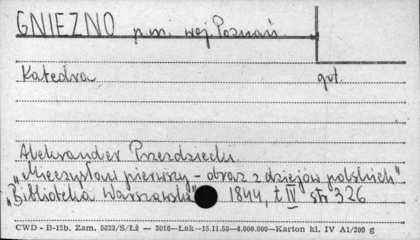 GNIEZNO p.m. woj. Poznań
Katedra got.
Aleksander Przezdziecki
„Mieczysław pierwszy - obraz z dziejów polskich"
„Biblioteka Warszawska" 1844, t. III str 326
CWD - B-15b. Zam. 5823/S/Łż — 3016—Łnk—15.11.55—4.000.000—Karton kl. IV A1/200 g